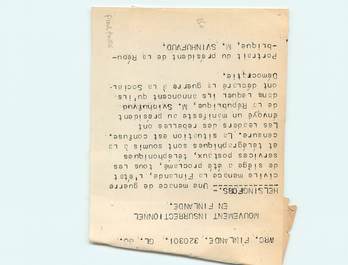 WRC. FINLANDE. 320301. GL. 30.
MOUVEMENT INSURRECTIONNEL
EN FINLANDE.
HELSINGFORS.- Une menace de guerre
civile menace la Finlande, l'état
de siège a été proclamé, tous les
services postaux, téléphoniques
et télégraphiques sont soumis à la
censure. La situation est confuse.
Les leaders des rebelles ont
envoyé un manifeste au président
de la République, M. Svinhufvud
dans lequel ils annoncent qu'ils
ont déclaré la guerre à la Social-
Démocratie.
Portrait du président de la Répu-
-blique, M. SVINHUFVUD.